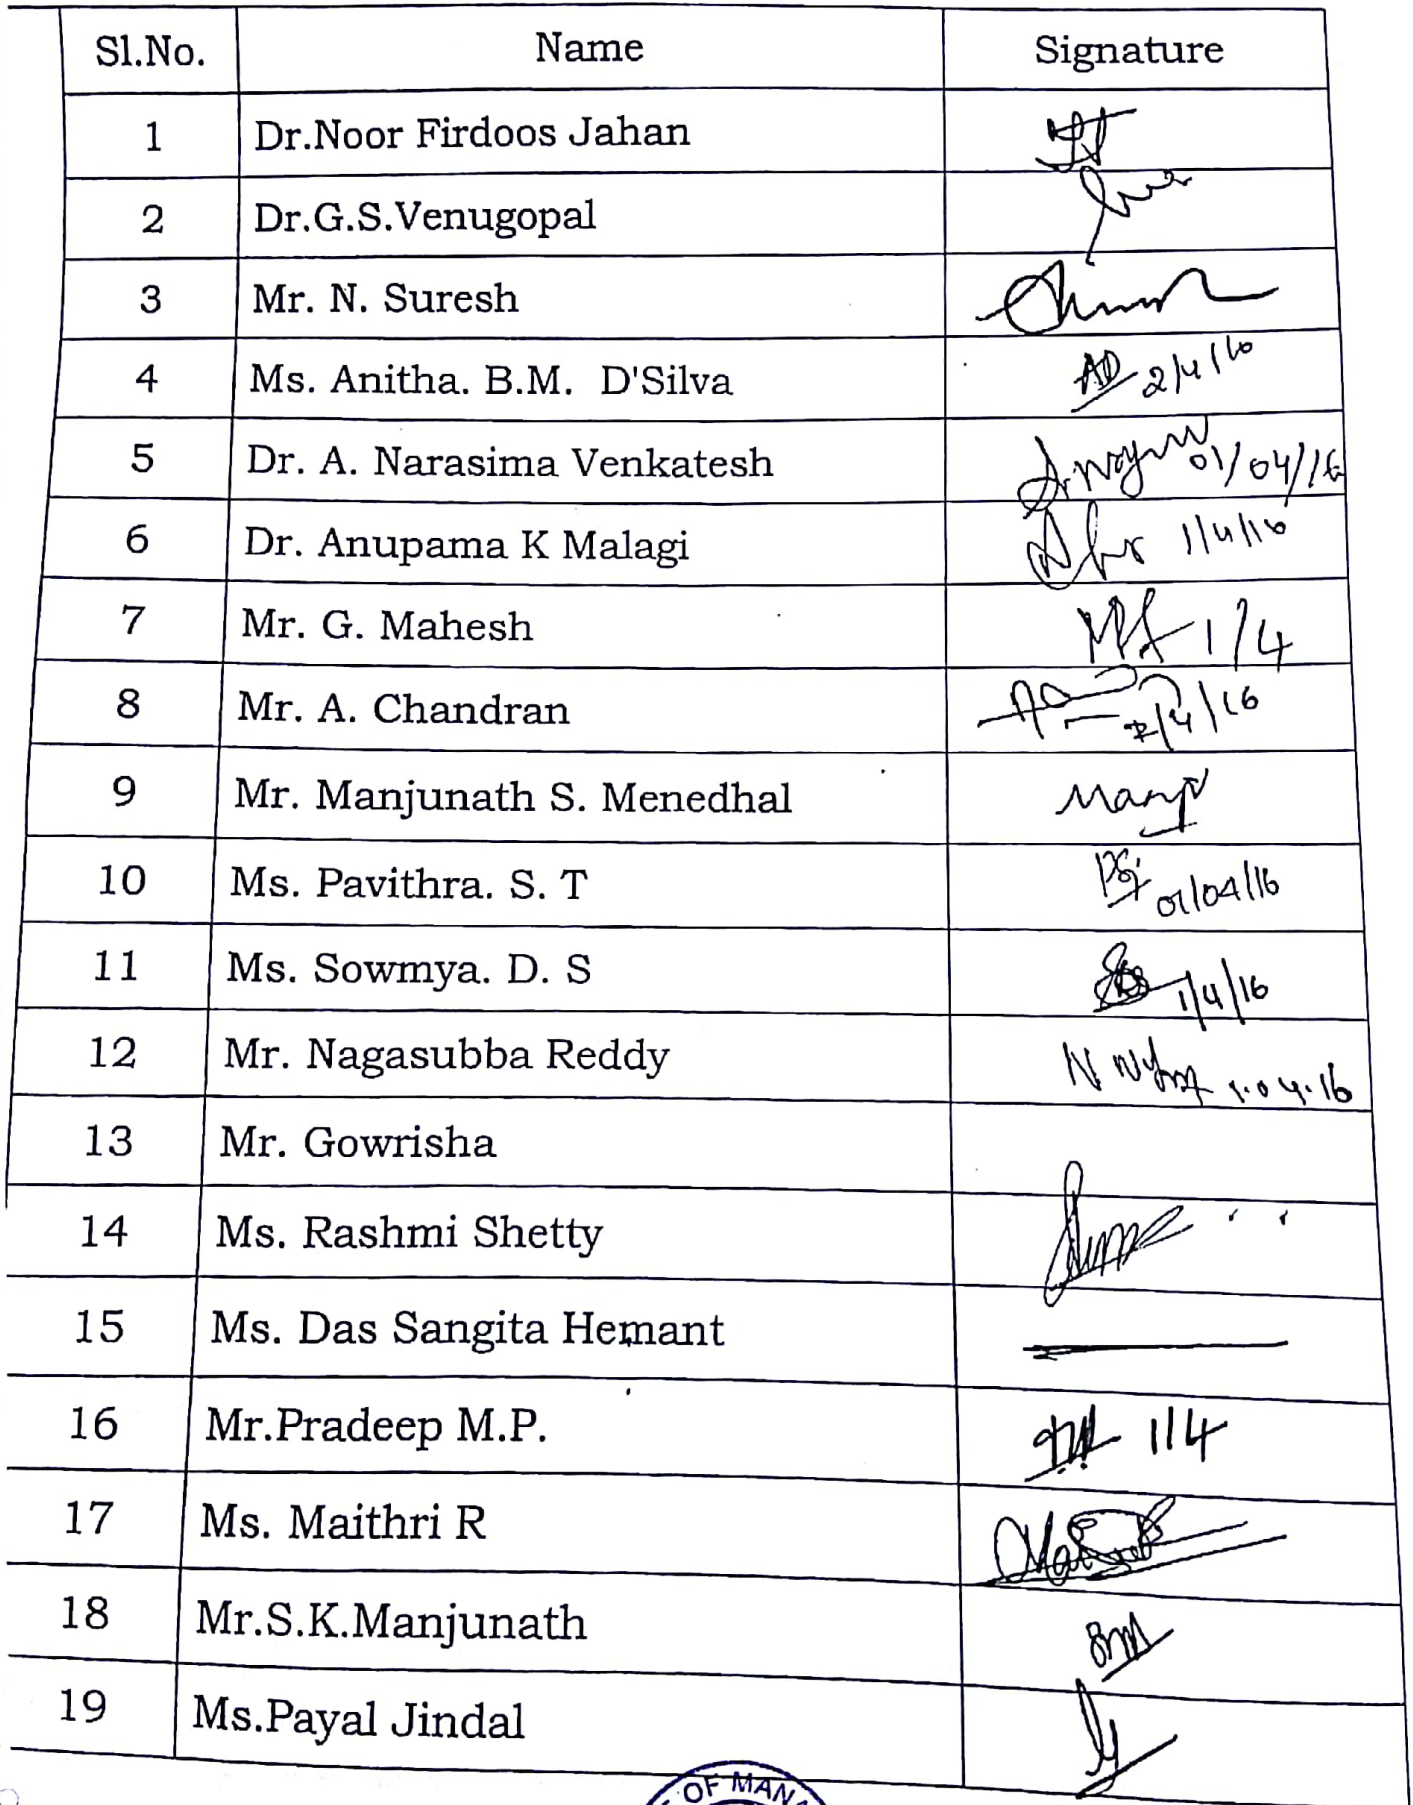 Sl.No. Name Signature
1 Dr.Noor Firdoos Jahan
2 Dr.G.S.Venugopal
3 Mr. N. Suresh
4 Ms. Anitha. B.M. D'Silva AD 2/4/16
5 Dr. A. Narasima Venkatesh 01/04/16
6 Dr. Anupama K Malagi 1/4/16
7 Mr. G. Mahesh 1/4
8 Mr. A. Chandran /4/16
9 Mr. Manjunath S. Menedhal Manju
10 Ms. Pavithra. S. T 01/04/16
11 Ms. Sowmya. D. S 1/4/16
12 Mr. Nagasubba Reddy 1.04.16
13 Mr. Gowrisha
14 Ms. Rashmi Shetty
15 Ms. Das Sangita Hemant
16 Mr.Pradeep M.P. 1/4
17 Ms. Maithri R
18 Mr.S.K.Manjunath
19 Ms.Payal Jindal
OF MANA